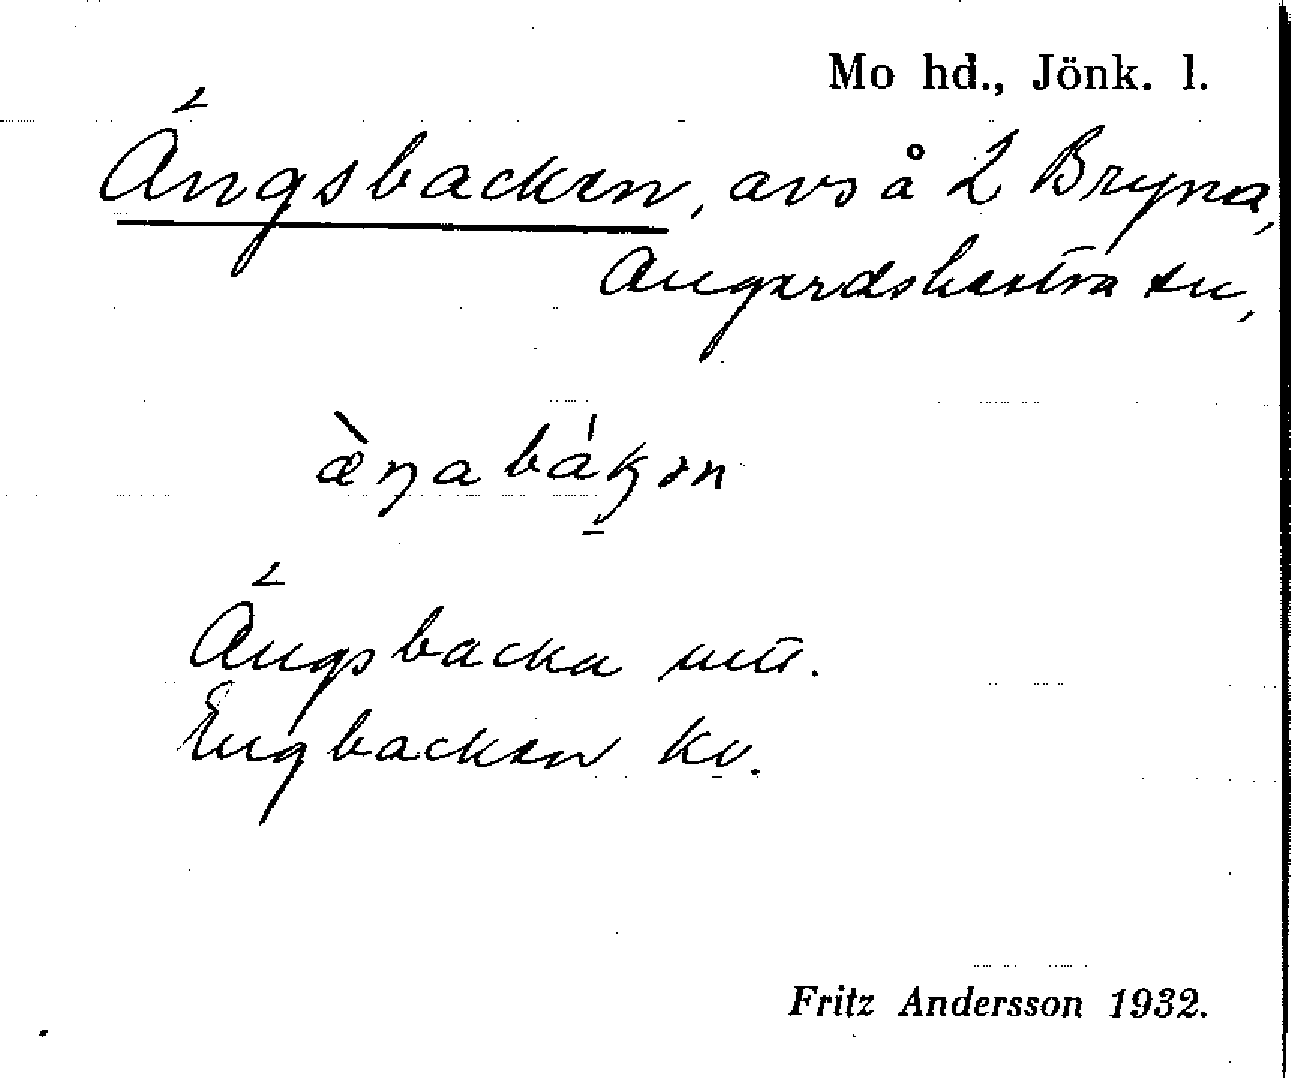 Mo hd., Jönk. l.
Ängsbacken, avs å 2 Bryna,
Angerdshestra sn,
æ̀ŋabákən
Ängsbacka mtl.
Engbacken kv.
Fritz Andersson 1932.